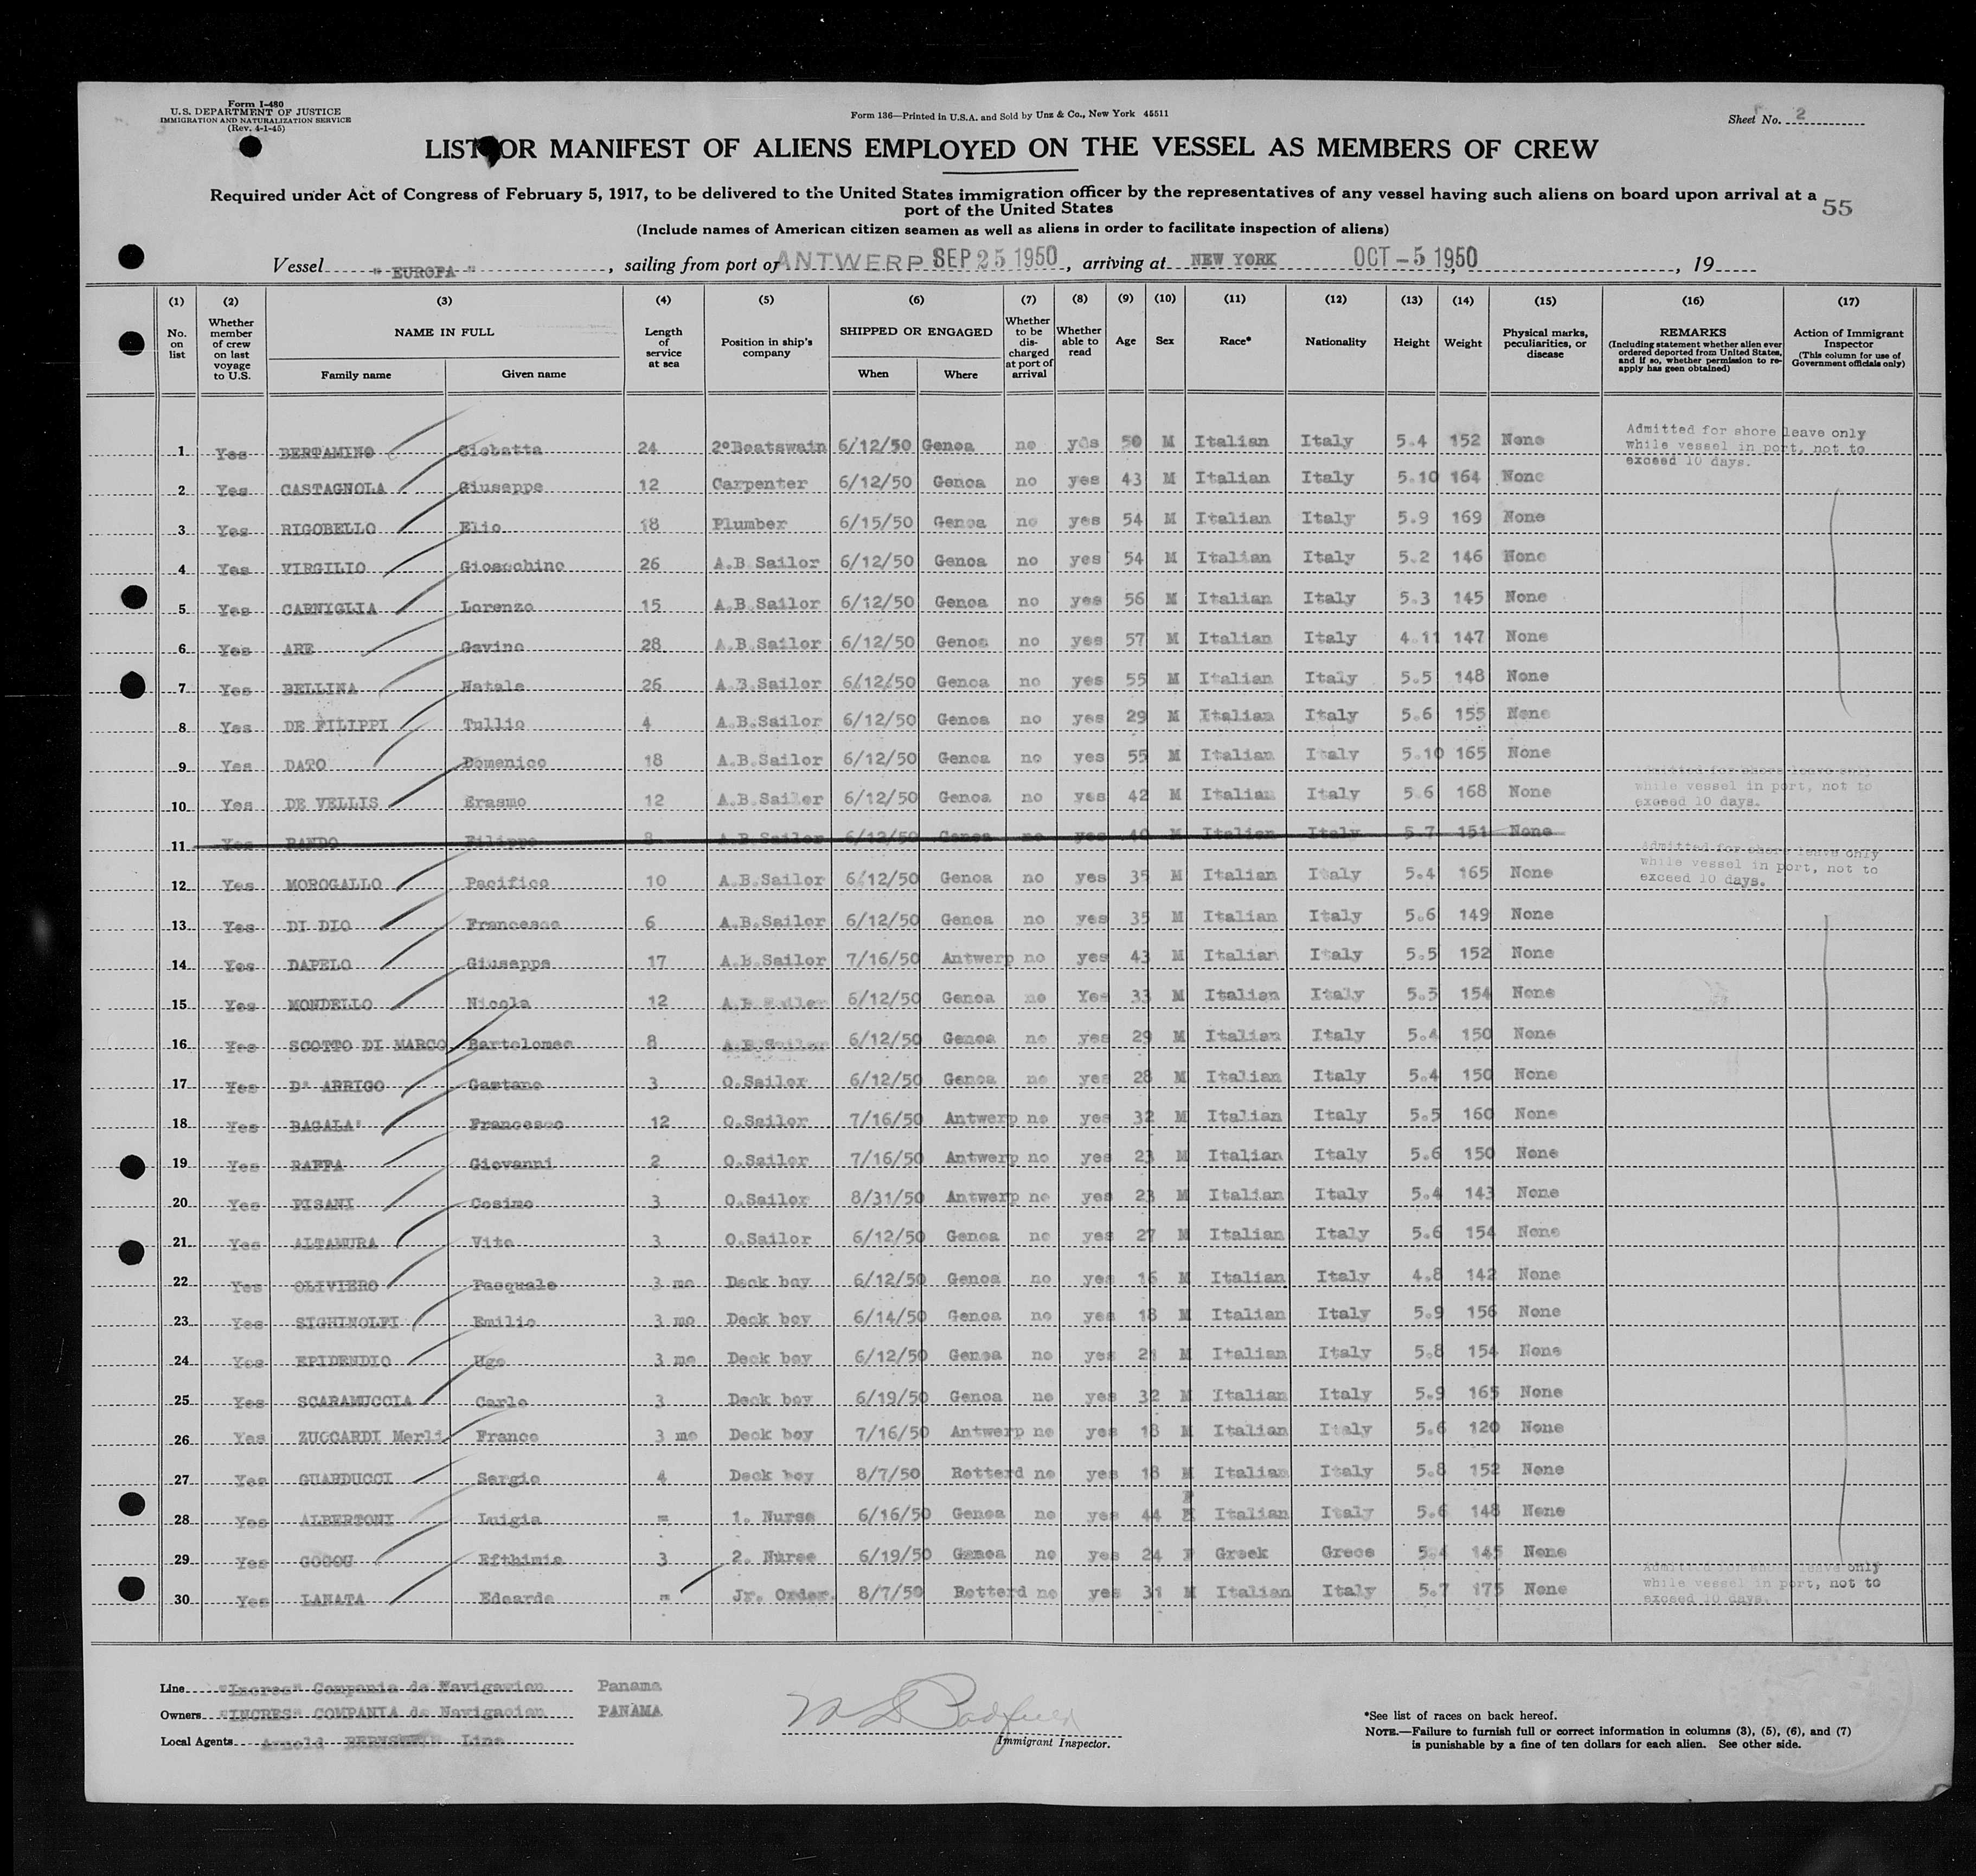 Form I-480
U.S. DEPARTMENT OF JUSTICE
IMMIGRATION AND NATURALIZATION SERVICE
(Rev. 4-1-45)
Form 136—Printed in U.S.A. and Sold by Unz & Co., New York 45511
Sheet No. 2
LIST OR MANIFEST OF ALIENS EMPLOYED ON THE VESSEL AS MEMBERS OF CREW
Required under Act of Congress of February 5, 1917, to be delivered to the United States immigration officer by the representatives of any vessel having such aliens on board upon arrival at a
port of the United States
55
(Include names of American citizen seamen as well as aliens in order to facilitate inspection of aliens)
Vessel "EUROPA", sailing from port of ANTWERP SEP 25 1950, arriving at NEW YORK OCT -5 1950, 19
(1) (2) (3) (4) (5) (6) (7) (8) (9) (10) (11) (12) (13) (14) (15) (16) (17)
No. on list
Whether member of crew on last voyage to U.S.
NAME IN FULL
Family name
Given name
Length of service at sea
Position in ship's company
SHIPPED OR ENGAGED
When
Where
Whether to be discharged at port of arrival
Whether able to read
Age
Sex
Race*
Nationality
Height
Weight
Physical marks, peculiarities, or disease
REMARKS
(Including statement whether alien ever ordered deported from United States, and if so, whether permission to re-apply has geen obtained)
Action of Immigrant Inspector
(This column for use of Government officials only)
1 Yes BERTAMINO Giobatta 24 2°Boatswain 6/12/50 Genoa no yes 50 M Italian Italy 5.4 152 None
Admitted for shore leave only
while vessel in port, not to
exceed 10 days.
2 Yes CASTAGNOLA Giuseppe 12 Carpenter 6/12/50 Genoa no yes 43 M Italian Italy 5.10 164 None
3 Yes RIGOBELLO Elio 18 Plumber 6/15/50 Genoa no yes 54 M Italian Italy 5.9 169 None
4 Yes VIRGILIO Gioacchino 26 A.B Sailor 6/12/50 Genoa no yes 54 M Italian Italy 5.2 146 None
5 Yes CARNIGLIA Lorenzo 15 A.B.Sailor 6/12/50 Genoa no yes 56 M Italian Italy 5.3 145 None
6 Yes ARE Gavino 28 A.B.Sailor 6/12/50 Genoa no yes 57 M Italian Italy 4.11 147 None
7 Yes BELLINA Natale 26 A.B.Sailor 6/12/50 Genoa no yes 55 M Italian Italy 5.5 148 None
8 Yes DE FILIPPI Tullio 4 A.B.Sailor 6/12/50 Genoa no yes 29 M Italian Italy 5.6 155 None
9 Yes DATO Domenico 18 A.B.Sailor 6/12/50 Genoa no yes 55 M Italian Italy 5.10 165 None
10 Yes DE VELLIS Erasmo 12 A.B.Sailor 6/12/50 Genoa no yes 42 M Italian Italy 5.6 168 None
Admitted for shore leave only
while vessel in port, not to
exceed 10 days.
11 Yes RANDO Filippo 8 A.B.Sailor 6/12/50 Genoa no yes 40 M Italian Italy 5.7 151 None
12 Yes MOROGALLO Pacifico 10 A.B.Sailor 6/12/50 Genoa no yes 35 M Italian Italy 5.4 165 None
Admitted for shore leave only
while vessel in port, not to
exceed 10 days.
13 Yes DI DIO Francesco 6 A.B.Sailor 6/12/50 Genoa no yes 35 M Italian Italy 5.6 149 None
14 Yes DAPELO Giuseppe 17 A.B.Sailor 7/16/50 Antwerp no yes 43 M Italian Italy 5.5 152 None
15 Yes MONDELLO Nicola 12 A.B.Sailor 6/12/50 Genoa no Yes 33 M Italian Italy 5.5 154 None
16 Yes SCOTTO DI MARCO Bartolomeo 8 A.B.Sailor 6/12/50 Genoa no yes 29 M Italian Italy 5.4 150 None
17 Yes D' ARRIGO Gaetano 3 O.Sailor 6/12/50 Genoa no yes 28 M Italian Italy 5.4 150 None
18 Yes BAGALA' Francesco 12 O.Sailor 7/16/50 Antwerp no yes 32 M Italian Italy 5.5 160 None
19 Yes RAFFA Giovanni 2 O.Sailor 7/16/50 Antwerp no yes 23 M Italian Italy 5.6 150 None
20 Yes PISANI Cosimo 3 O.Sailor 8/31/50 Antwerp no yes 23 M Italian Italy 5.4 143 None
21 Yes ALTAMURA Vito 3 O.Sailor 6/12/50 Genoa no yes 27 M Italian Italy 5.6 154 None
22 Yes OLIVIERO Pasquale 3 mo Deck boy 6/12/50 Genoa no yes 16 M Italian Italy 4.8 142 None
23 Yes SIGHINOLFI Emilio 3 mo Deck boy 6/14/50 Genoa no yes 18 M Italian Italy 5.9 156 None
24 Yes EPIDENDIO Ugo 3 mo Deck boy 6/12/50 Genoa no yes 21 M Italian Italy 5.8 154 None
25 Yes SCARAMUCCIA Carlo 3 Deck boy 6/19/50 Genoa no yes 32 M Italian Italy 5.9 165 None
26 Yes ZUCCARDI Merli Franco 3 mo Deck boy 7/16/50 Antwerp no yes 18 M Italian Italy 5.6 120 None
27 Yes GUARDUCCI Sergio 4 Deck boy 8/7/50 Rotterd no yes 18 M Italian Italy 5.8 152 None
28 Yes ALBERTONI Luigia = 1. Nurse 6/16/50 Genoa no yes 44 F Italian Italy 5.6 148 None
29 Yes GOGOU Efthimia 3 2. Nurse 6/19/50 Genoa no yes 24 F Greek Grece 5.4 145 None
30 Yes LANATA Edoardo = Jr. Order. 8/7/50 Rotterd no yes 31 M Italian Italy 5.7 175 None
Admitted for shore leave only
while vessel in port, not to
exceed 10 days.
Line "Incres" Compania de Navigawion Panama
Owners "INCRES" COMPANIA de Navigacion PANAMA
Local Agents Arnold BERNSTEIN Line
Immigrant Inspector.
*See list of races on back hereof.
NOTE.—Failure to furnish full or correct information in columns (3), (5), (6), and (7)
is punishable by a fine of ten dollars for each alien. See other side.